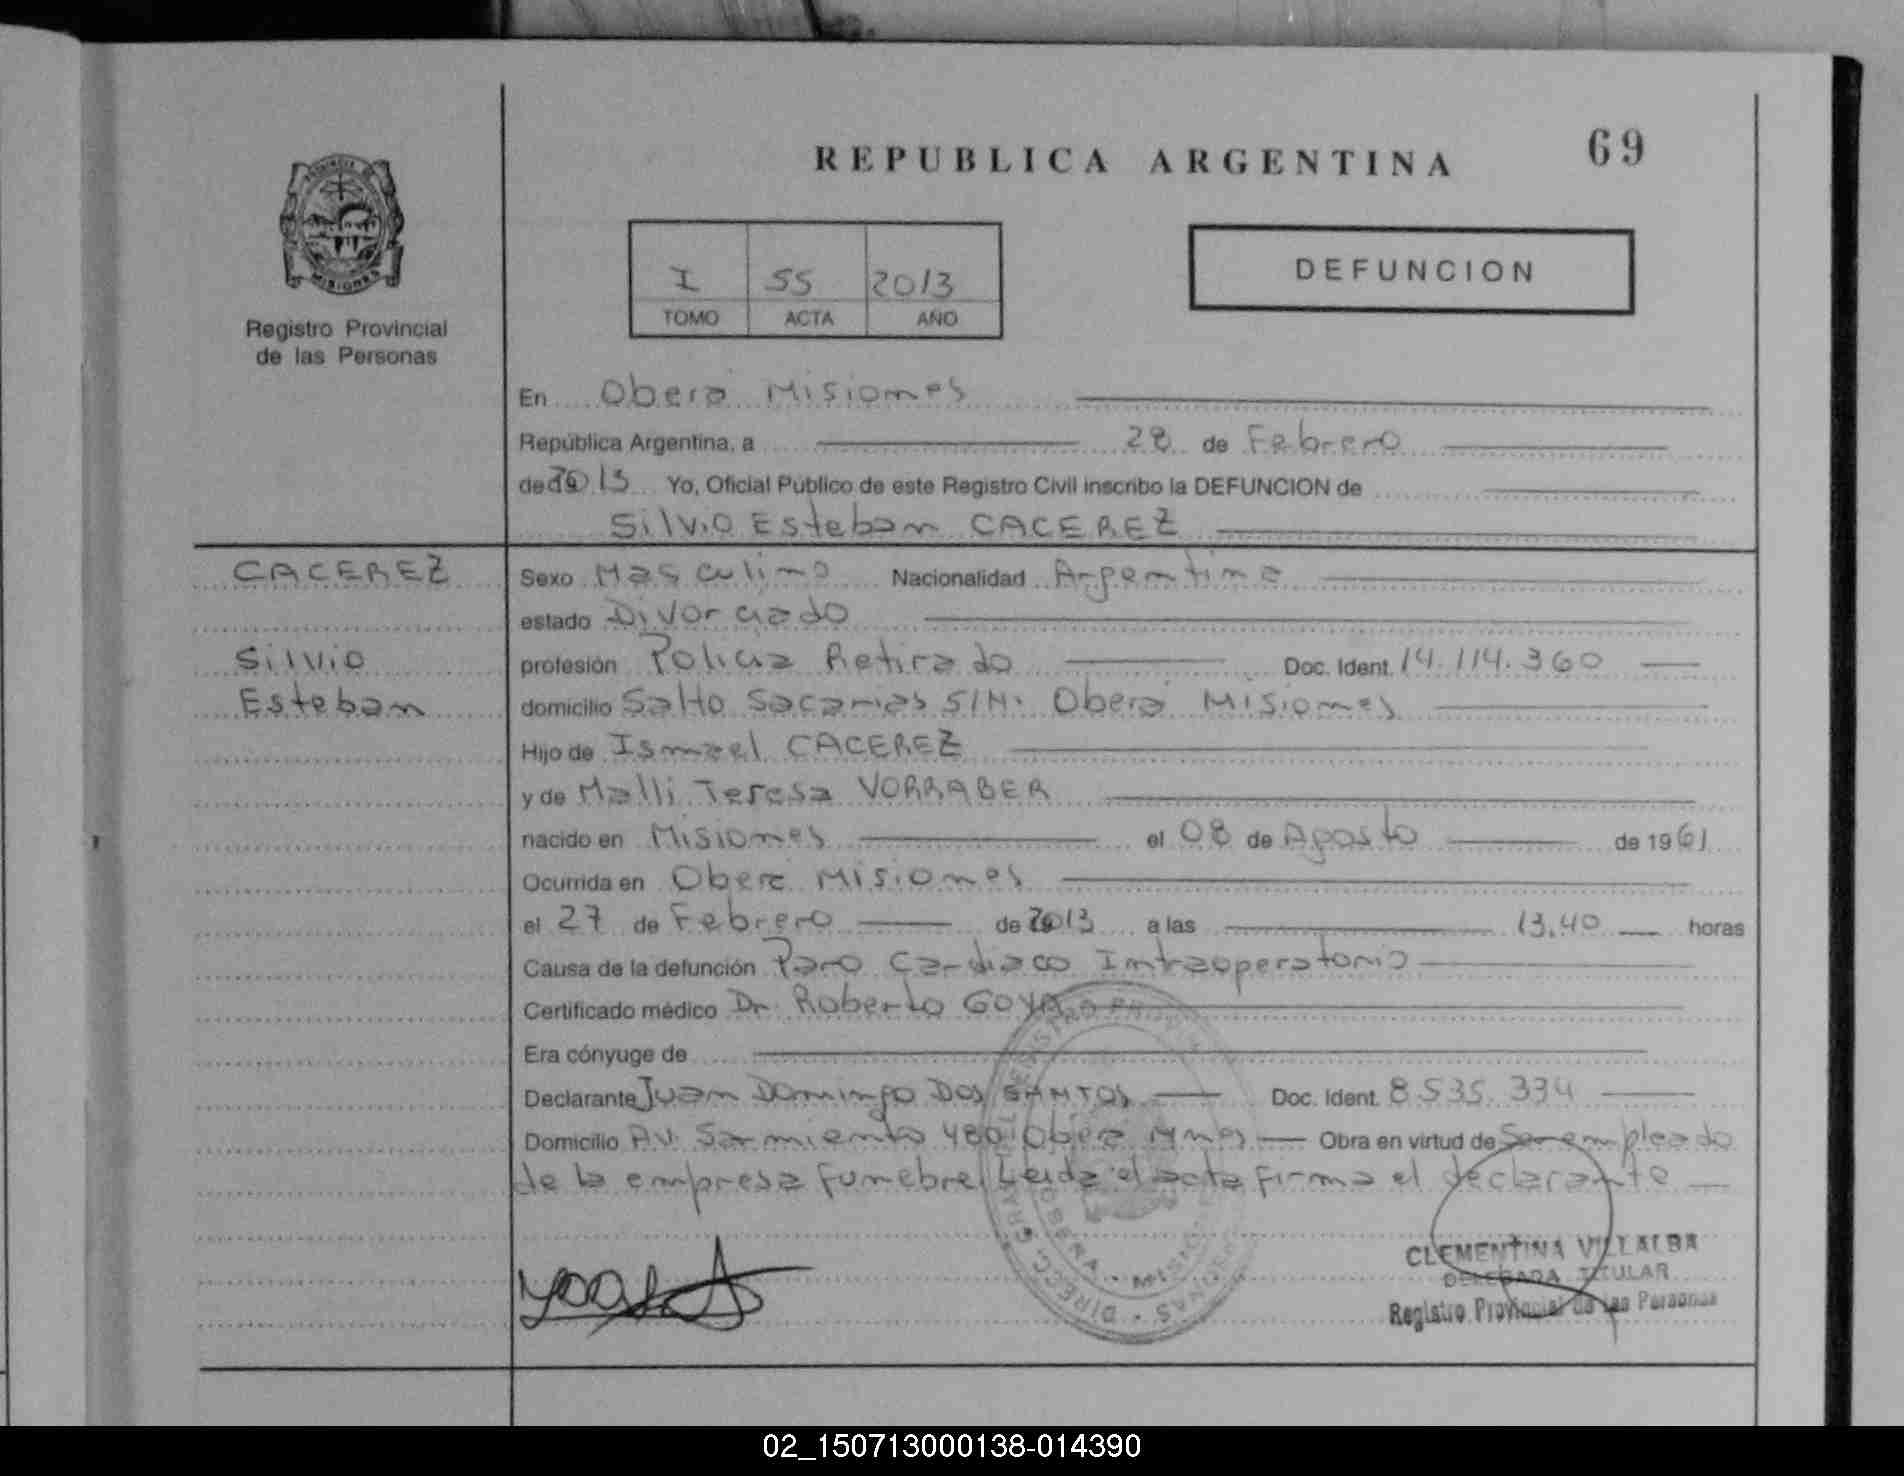 REPUBLICA ARGENTINA
69
MISIONES
Registro Provincial
de las Personas
I 55 2013
TOMO ACTA AÑO
DEFUNCION
En Obera Misiones
República Argentina, a 28 de Febrero
de 2013 Yo, Oficial Público de este Registro Civil inscribo la DEFUNCION de
Silvio Esteban CACEREZ
CACEREZ
Silvio
Esteban
Sexo Masculino Nacionalidad Argentina
estado Divorciado
profesión Policia Retirado Doc. Ident. 14.114.360
domicilio Salto Sacarias S/N. Oberá Misiones
Hijo de Ismael CACEREZ
y de Malli Teresa VORRABER
nacido en Misiones el 08 de Agosto de 1961
Ocurrida en Obera Misiones
el 27 de Febrero de 2013 a las 13,40 horas
Causa de la defunción Paro Cardiaco Intraoperatorio
Certificado médico Dr. Roberto GOYA
Era cónyuge de
Declarante Juan Domingo DOS SANTOS Doc. Ident. 8.535.334
Domicilio Av. Sarmiento 480 Obera Mnes Obra en virtud de Ser empleado
de la empresa funebre. Leida el acta firma el declarante
CLEMENTINA VILLALBA
DELEGADA TITULAR
Registro Provincial de las Personas
02_150713000138-014390